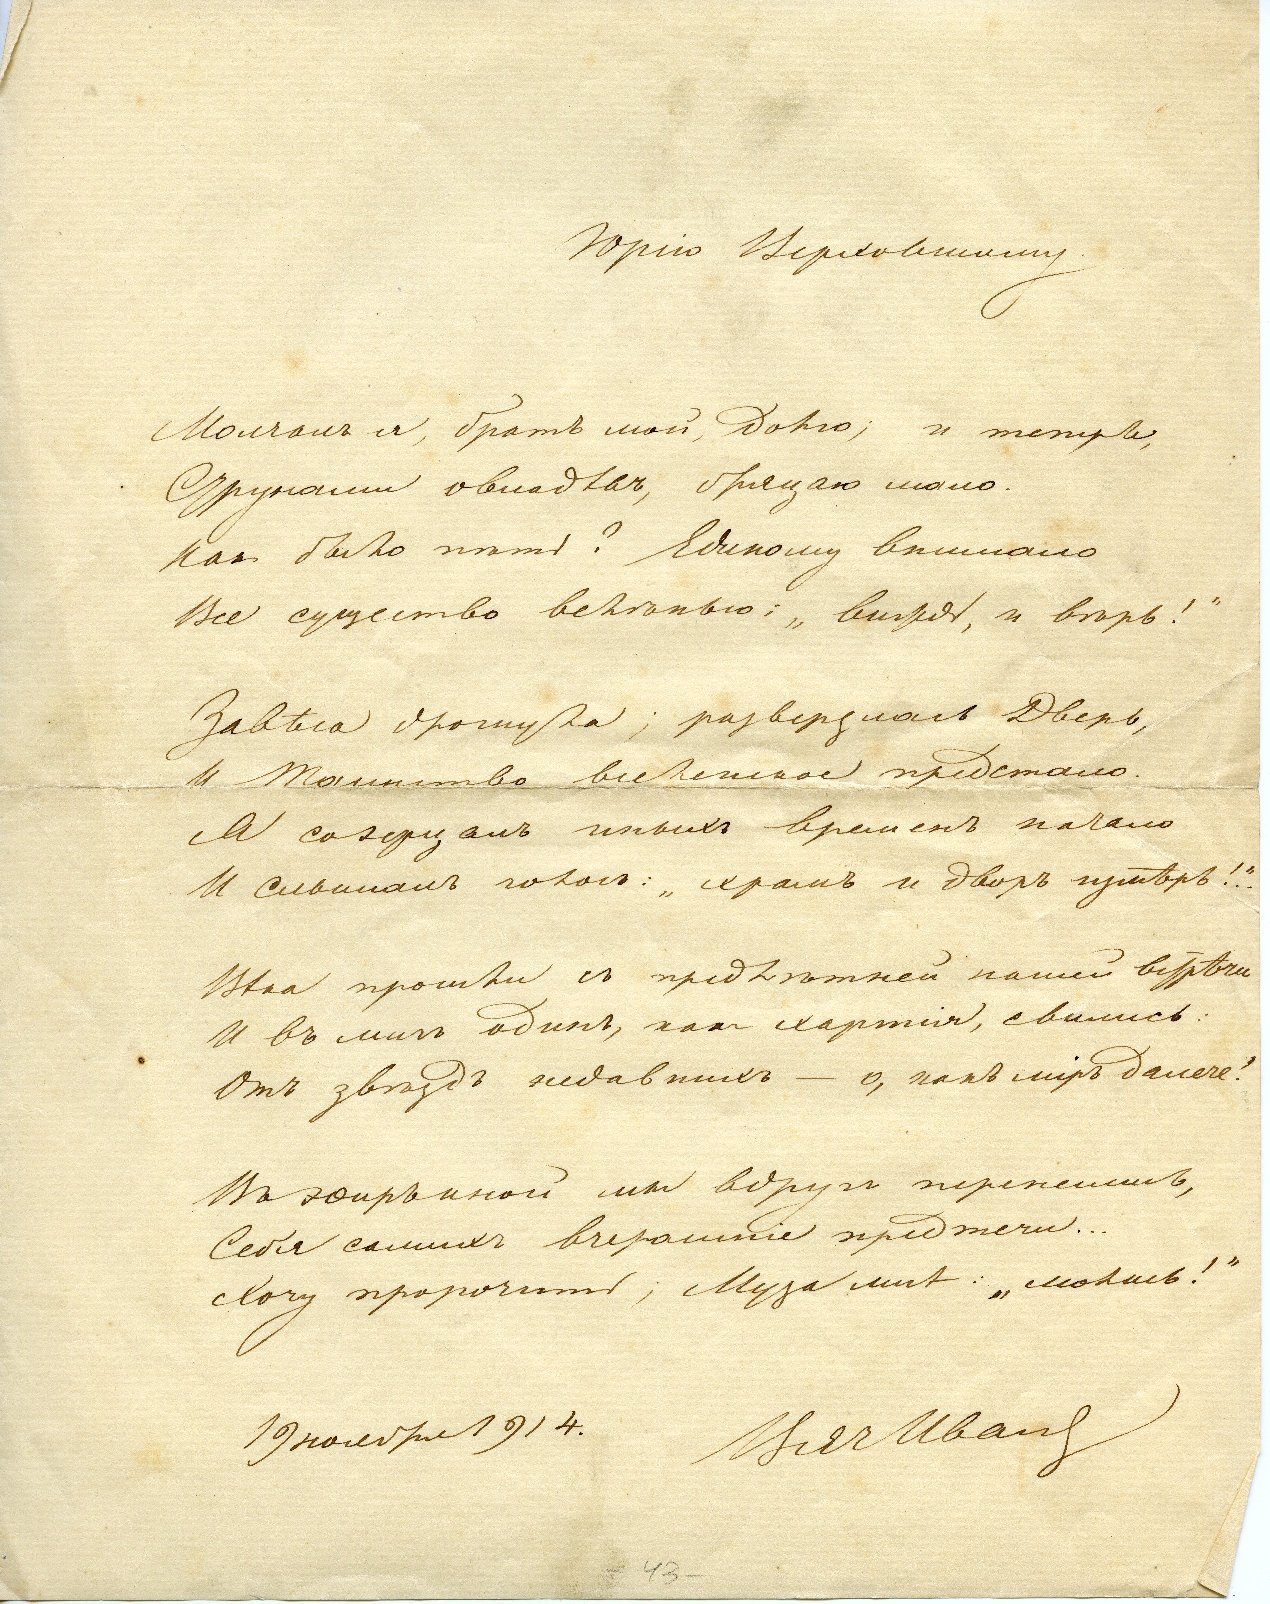 Юрію Верховскому.
Молчалъ я, братъ мой, долго; и теперь,
Струнами овладѣвъ, бряцаю мало.
Какъ было пѣть? Единому внимало
Все существо велѣнью: „виждь, и вѣрь!“
Завѣса дрогнула; разверзлась Дверь,
И Таинство вселенское предстало.
Я созерцалъ иныхъ временъ начало
И слышалъ голосъ: „храмъ и дворъ измѣрь!“..
Вѣка прошли съ предлѣтней нашей встрѣчи
И въ мигъ одинъ, какъ хартія, свились:
Отъ звѣздъ недавнихъ — о, какъ міръ далече!
Въ эѳиръ иной мы вдругъ перенеслись,
Себя самихъ вчерашніе предтечи...
Хочу пророчить; Муза мнѣ: „молись!“
19 ноября 1914.
Вяч Иванов
43–